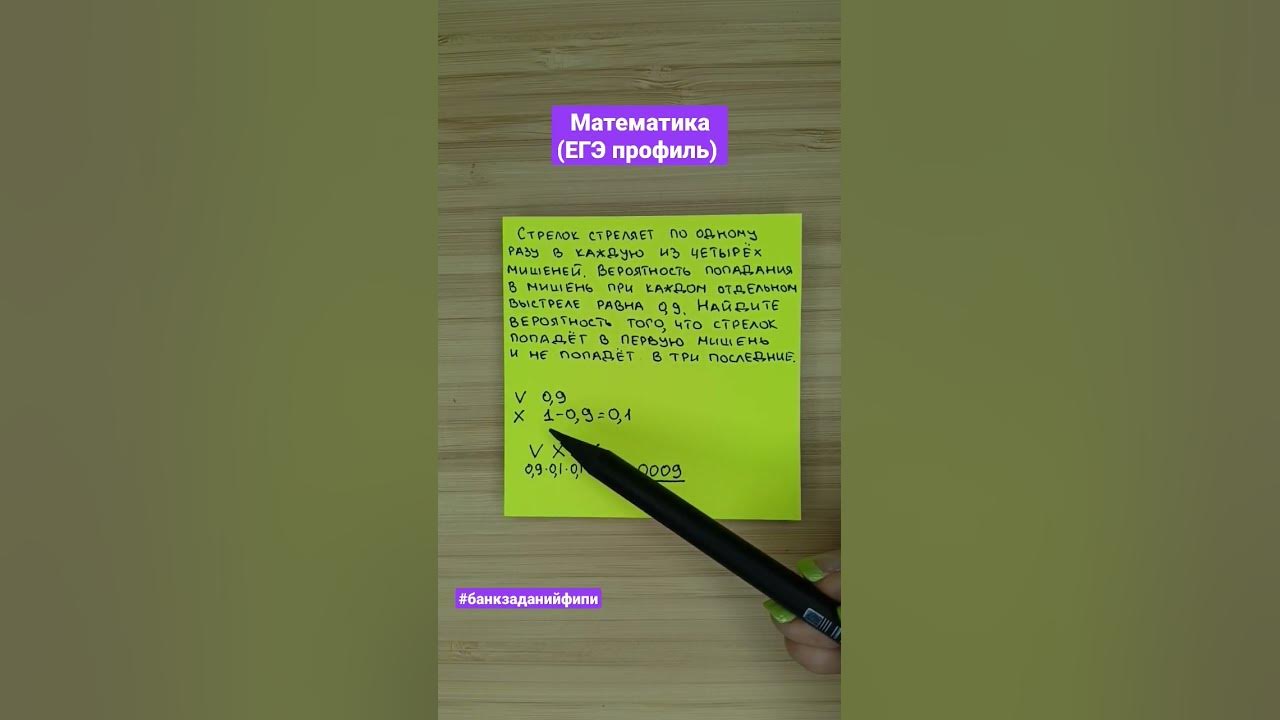 Математика
(ЕГЭ профиль)
СТРЕЛОК СТРЕЛЯЕТ ПО ОДНОМУ
РАЗУ В КАЖДУЮ ИЗ ЧЕТЫРЁХ
МИШЕНЕЙ. ВЕРОЯТНОСТЬ ПОПАДАНИЯ
В МИШЕНЬ ПРИ КАЖДОМ ОТДЕЛЬНОМ
ВЫСТРЕЛЕ РАВНА 0,9. НАЙДИТЕ
ВЕРОЯТНОСТЬ ТОГО, ЧТО СТРЕЛОК
ПОПАДЁТ В ПЕРВУЮ МИШЕНЬ
И НЕ ПОПАДЁТ В ТРИ ПОСЛЕДНИЕ.
V 0,9
X 1-0,9=0,1
V X
0,9·0,1·0,1 0009
#банкзаданийфипи